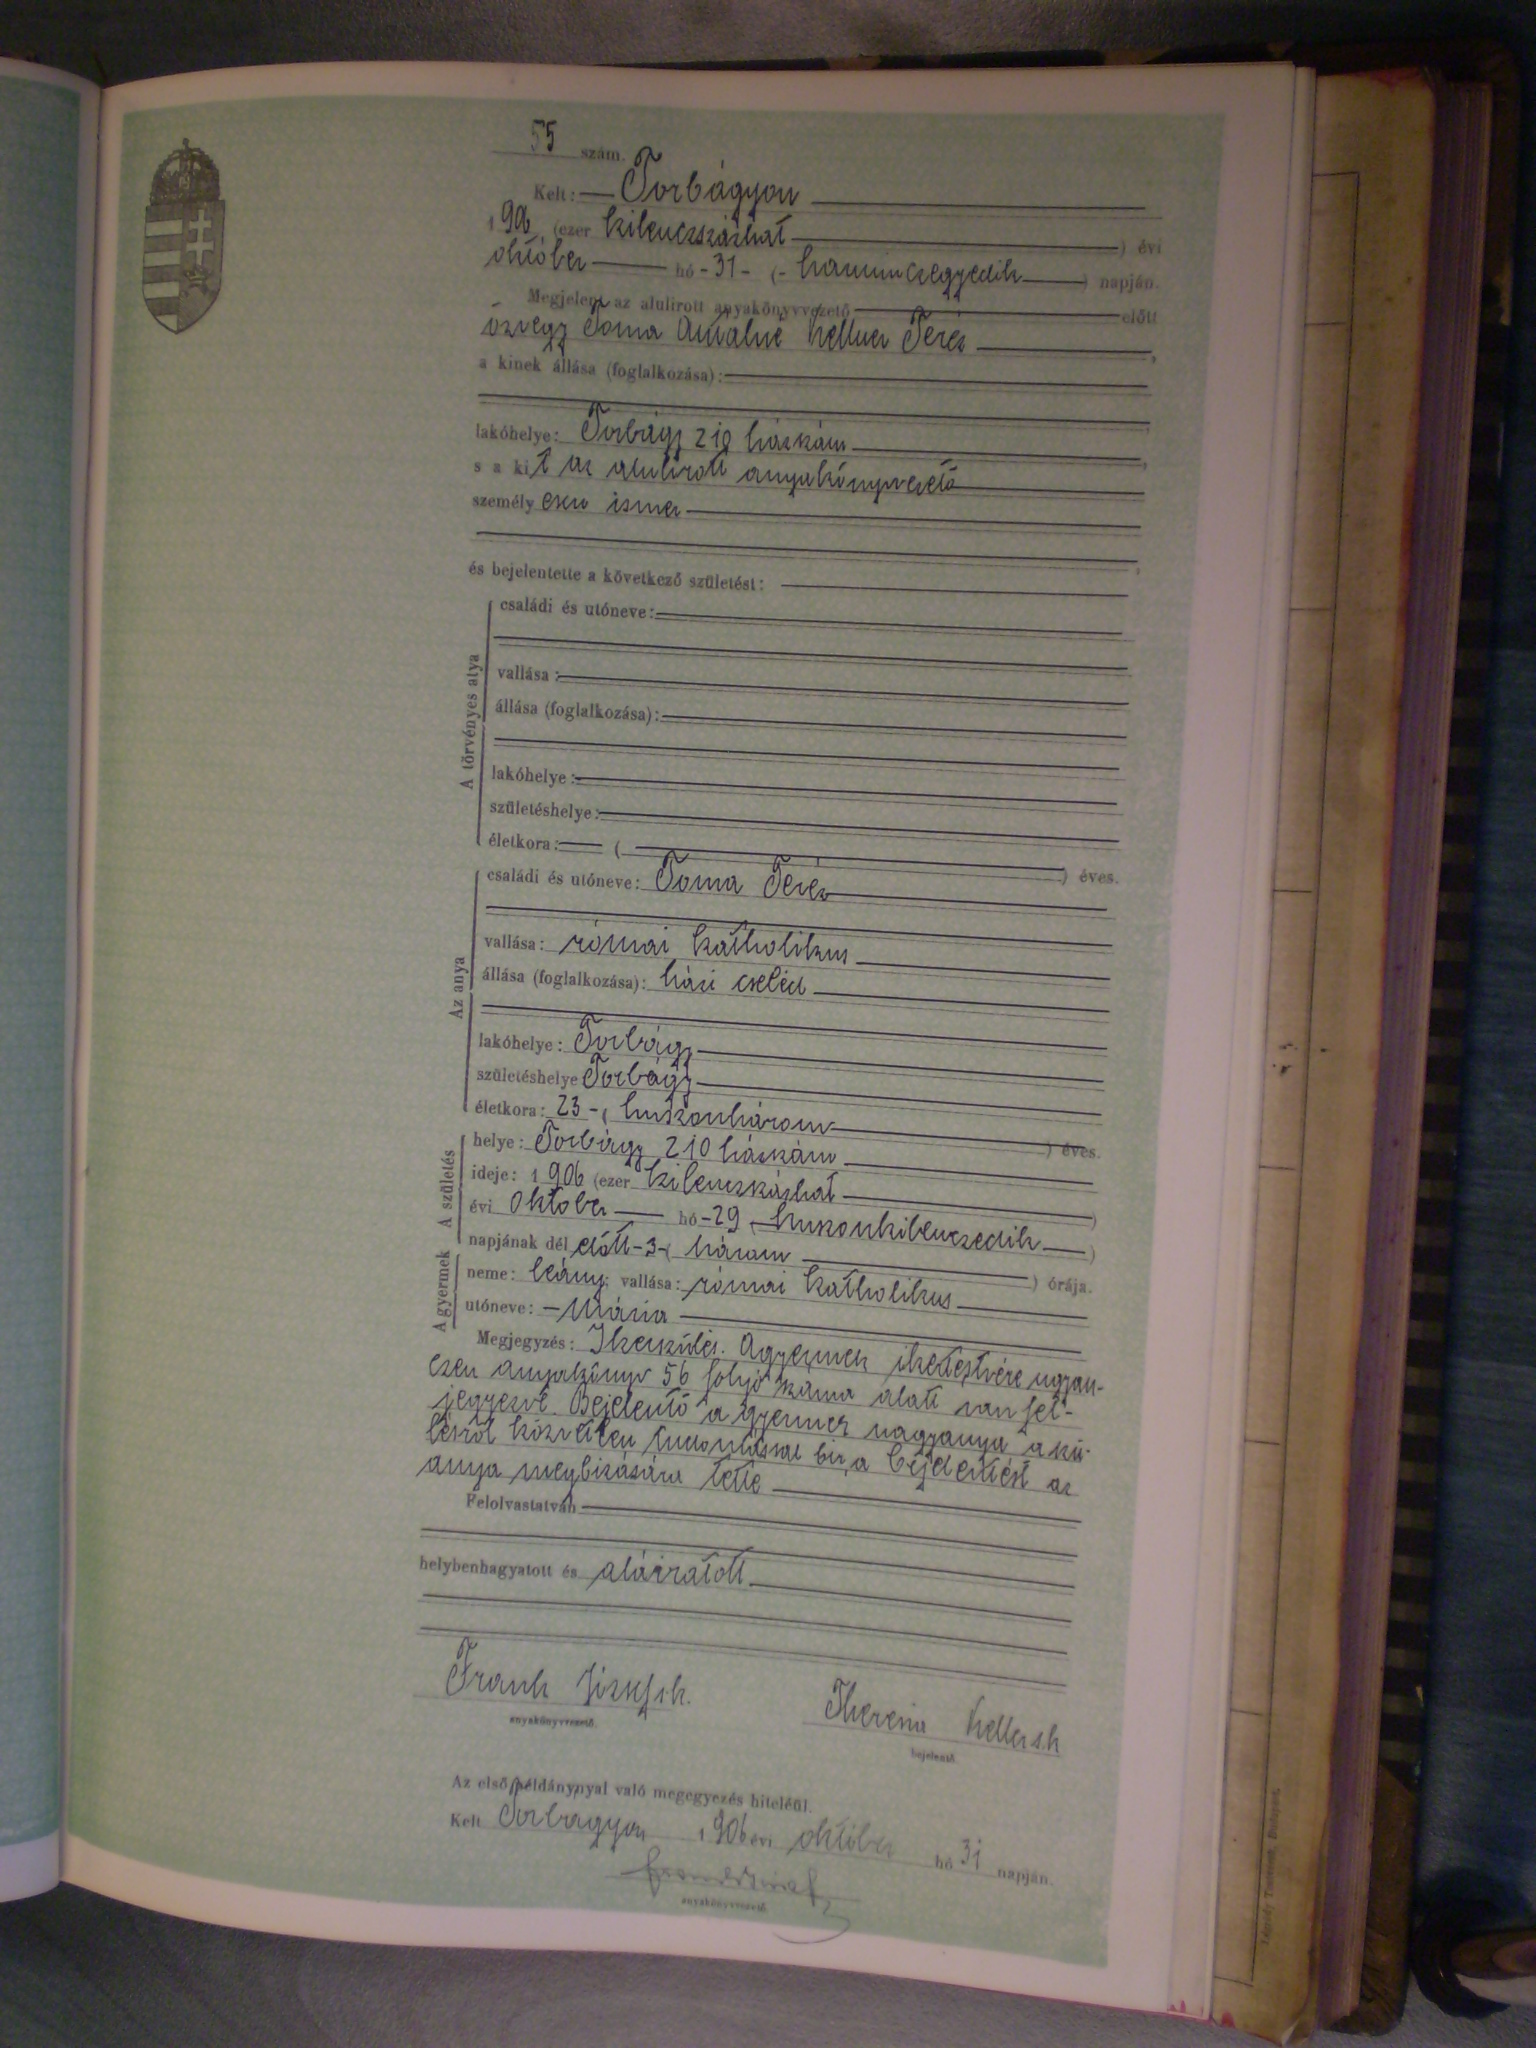 55 szám.
Kelt: Torbágyon
1906 (ezer kilenczszázhat) évi
október hó 31 (harminczegyedik) napján.
Megjelent az alulirott anyakönyvvezető előtt
özvegy Toma Antalné Keller Teréz,
a kinek állása (foglalkozása):
lakóhelye: Torbágy 210 házszám,
s a kit az alulirott anyakönyvvezető
személyesen ismer
és bejelentette a következő születést:
A törvényes atya
családi és utóneve:
vallása:
állása (foglalkozása):
lakóhelye:
születéshelye:
életkora: ( ) éves.
Az anya
családi és utóneve: Toma Teréz
vallása: római katholikus
állása (foglalkozása): házi cseléd
lakóhelye: Torbágy
születéshelye Torbágy
életkora: 23 - (huszonhárom) éves.
A születés
helye: Torbágy 210 házszám
ideje: 1906 (ezer kilenczszázhat)
évi október hó - 29 (huszonkilenczedik)
napjának délelőtt - 3 - (három) órája.
A gyermek
neme: leány; vallása: római katholikus
utóneve: - Mária
Megjegyzés: Ikerszülés. A gyermek ikertestvére ugyan-
ezen anyakönyv 56 folyó száma alatt van fel-
jegyezve. Bejelentő a gyermek nagyanya a szü-
lésről közvetlen tudomással bir, a bejelentést az
anya megbizására tette
Felolvastatván
helybenhagyatott és aláiratott
Frank József sk.
anyakönyvvezető.
Theresia Keller s.k.
bejelentő.
Az első példánynyal való megegyezés hiteléül.
Kelt Torbágyon 1906 évi október hó 31 napján.
Frank József
anyakönyvvezető